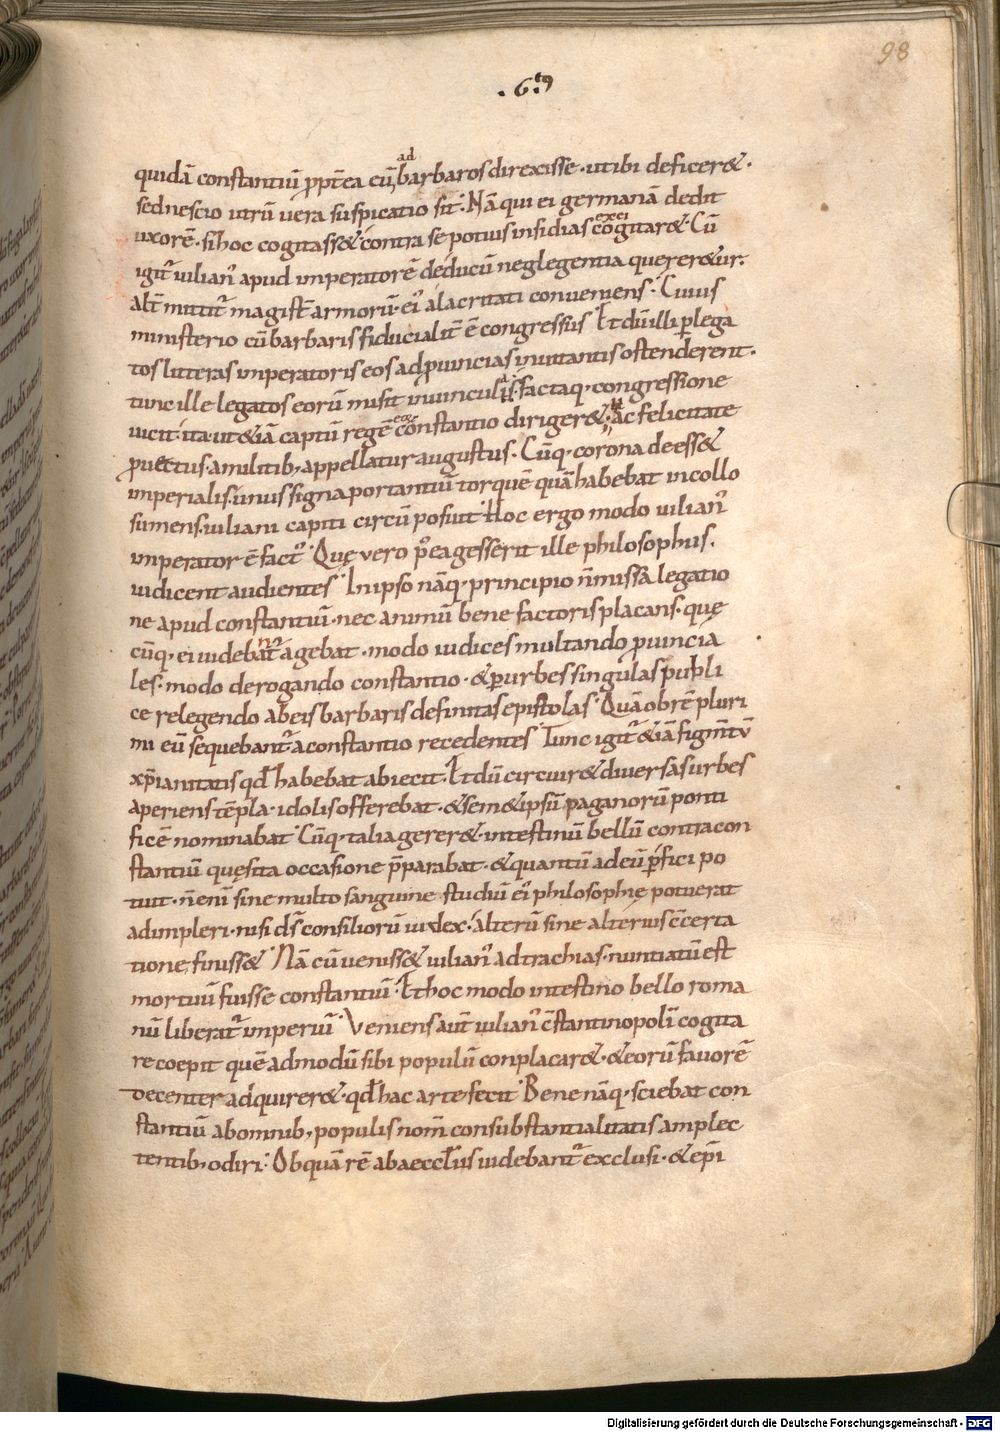 98
.6.tus
quidā constantiū ꝓpt̄ea cū ad barbaros direxisse · ut ibi deficer& ·
sed nescio utrū uera suspicatio sit · Nā qui ei germanā dedit
uxorē · si hoc cogitass& contra se potius insidias excogitar& · Cū
igit̄ iulian᾽ apud imperatorē de ducū neglegentia quereretur ·
alt̄ mittit̄ magist̄ armorū · ei᾽ alacritati conueniens · Cuius
ministerio cū barbaris fiducialit̄ ē congressus Et dū illi ꝑ lega
tos litteras imperatoris eos ad ꝓuincias inuitantis ostenderent ·
tunc ille legatos eorū misit in uinculis · factaq· congressione
uicit · ita ut &iā captū regē eoꝝ constantio diriger& · ac felicitate
ꝓuectus · a militib; appellatur augustus · Cūq· corona deess&
imperialis · unus signa portantiū torquē quā habebat in collo
sumens · iuliani capiti circū posuit · Hoc ergo modo iulian᾽
imperator ē fact᾽ · Quę uero p᾽ea gesserit ille philosophus ·
iudicent audientes · In ipso nāq· principio n̄ missa legatio
ne apud constantiū · nec animū bene factoris placans · quę
cūq· ei uidebant̄ agebat · modo iudices multando ꝓuincia
les · modo derogando constantio · & ꝑ urbes singulas publi
ce relegendo ab eis barbaris definitas epistolas · Quā ob rē pluri
mi eū sequebant̄ a constantio recedentes · Tunc igit̄ &iā figm̄tū
xp̄ianitatis qđ habebat abiecit · Et dū circuir& diuersas urbes
aperiens tēpla · idolis offerebat · & sem&ipsū paganorū ponti
ficē nominabat · Cūq· talia gerer& · intestinū bellū contra con
stantiū quęsita occasione p̄parabat · & quantū ad eū ꝑfici po
tuit · n̄ enī sine multo sanguine studiū ei᾽ philosophię potuerat
adimpleri · nisi ds̄ consiliorū iudex · alterū sine alterius c̄certa
tione finiss& · Nā cū ueniss& iulian᾽ ad trachias · nuntiatū est
mortuū fuisse constantiū · Et hoc modo intestino bello roma
nū liberat̄ imperiū · Veniens aut̄ iulian᾽ c̄stantinopolī cogita
re coepit quē ad modū sibi populū conplacar& · & eorū fauorē
decenter adquirer& · qđ hac arte fecit · Bene nāq· sciebat con
stantiū ab omnib; populis nom̄ consubstantialitatis amplec
tentib; odiri · Ob quā rē ab aecclis uidebant̄ exclusi · & epī
Digitalisierung gefördert durch die Deutsche Forschungsgemeinschaft - DFG